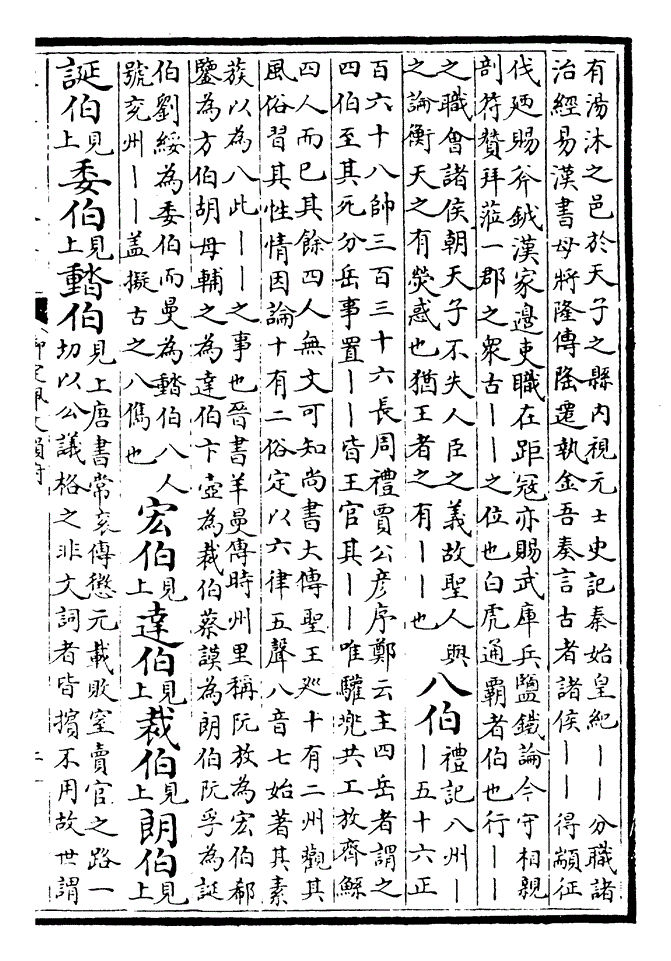 有湯沐之邑於天子之縣內視元士史記秦始皇紀丨丨分職諸
治經易漢書毋將隆傳隆遷執金吾奏言古者諸侯丨丨得顓征
伐廼賜斧鉞漢家邉吏職在距冦亦賜武庫兵鹽鐵論今守相親
剖符贊拜蒞一郡之衆古丨丨之位也白虎通霸者伯也行丨丨
之職會諸侯朝天子不失人臣之義故聖人與
之論衡天之有熒惑也猶王者之有丨丨也
八伯
禮記八州丨
丨五十六正
百六十八帥三百三十六長周禮賈公彦序鄭云主四岳者謂之
四伯至其死分岳事置丨丨皆王官其丨丨唯驩兜共工放齊鯀
四人而已其餘四人無文可知尚書大傳聖王廵十有二州觀其
風俗習其性情因論十有二俗定以六律五聲八音七始著其素
蔟以為八此丨丨之事也晉書羊曼傳時州里稱阮放為宏伯郗
鑒為方伯胡毋輔之為達伯卞壺為裁伯蔡謨為朗伯阮孚為誕
伯劉綏為委伯而曼為䵬伯八人
號兗州丨丨盖擬古之八儁也
宏伯
見上
達伯
見上
裁伯
見上
朗伯
見上
誕伯
見上
委伯
見上
䵬伯
見上唐書常衮傳懲元載敗窒賣官之路一
切以公議格之非文詞者皆擯不用故世謂